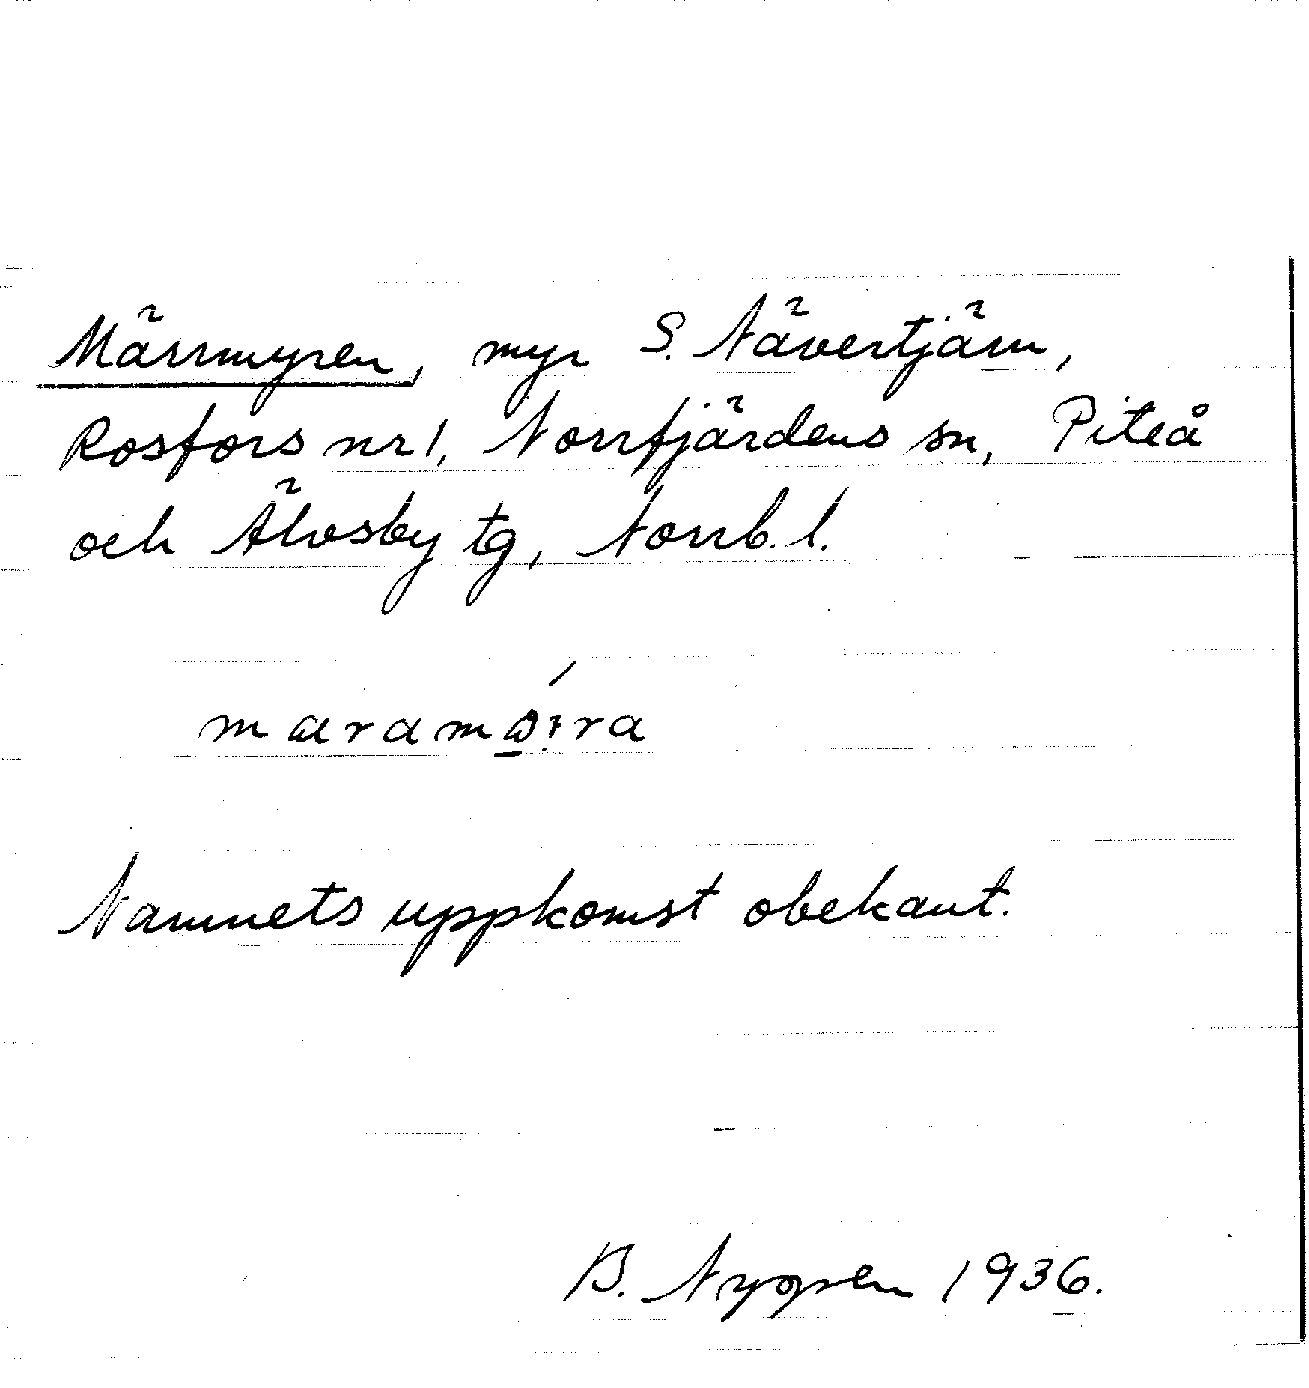 Märrmyren, myr S. Nävertjärn,
Rosfors nr 1, Norrfjärdens sn, Piteå
och Älvsby tg, Norrb. l.
Namnets uppkomst obekant.
B. Nygren 1936.